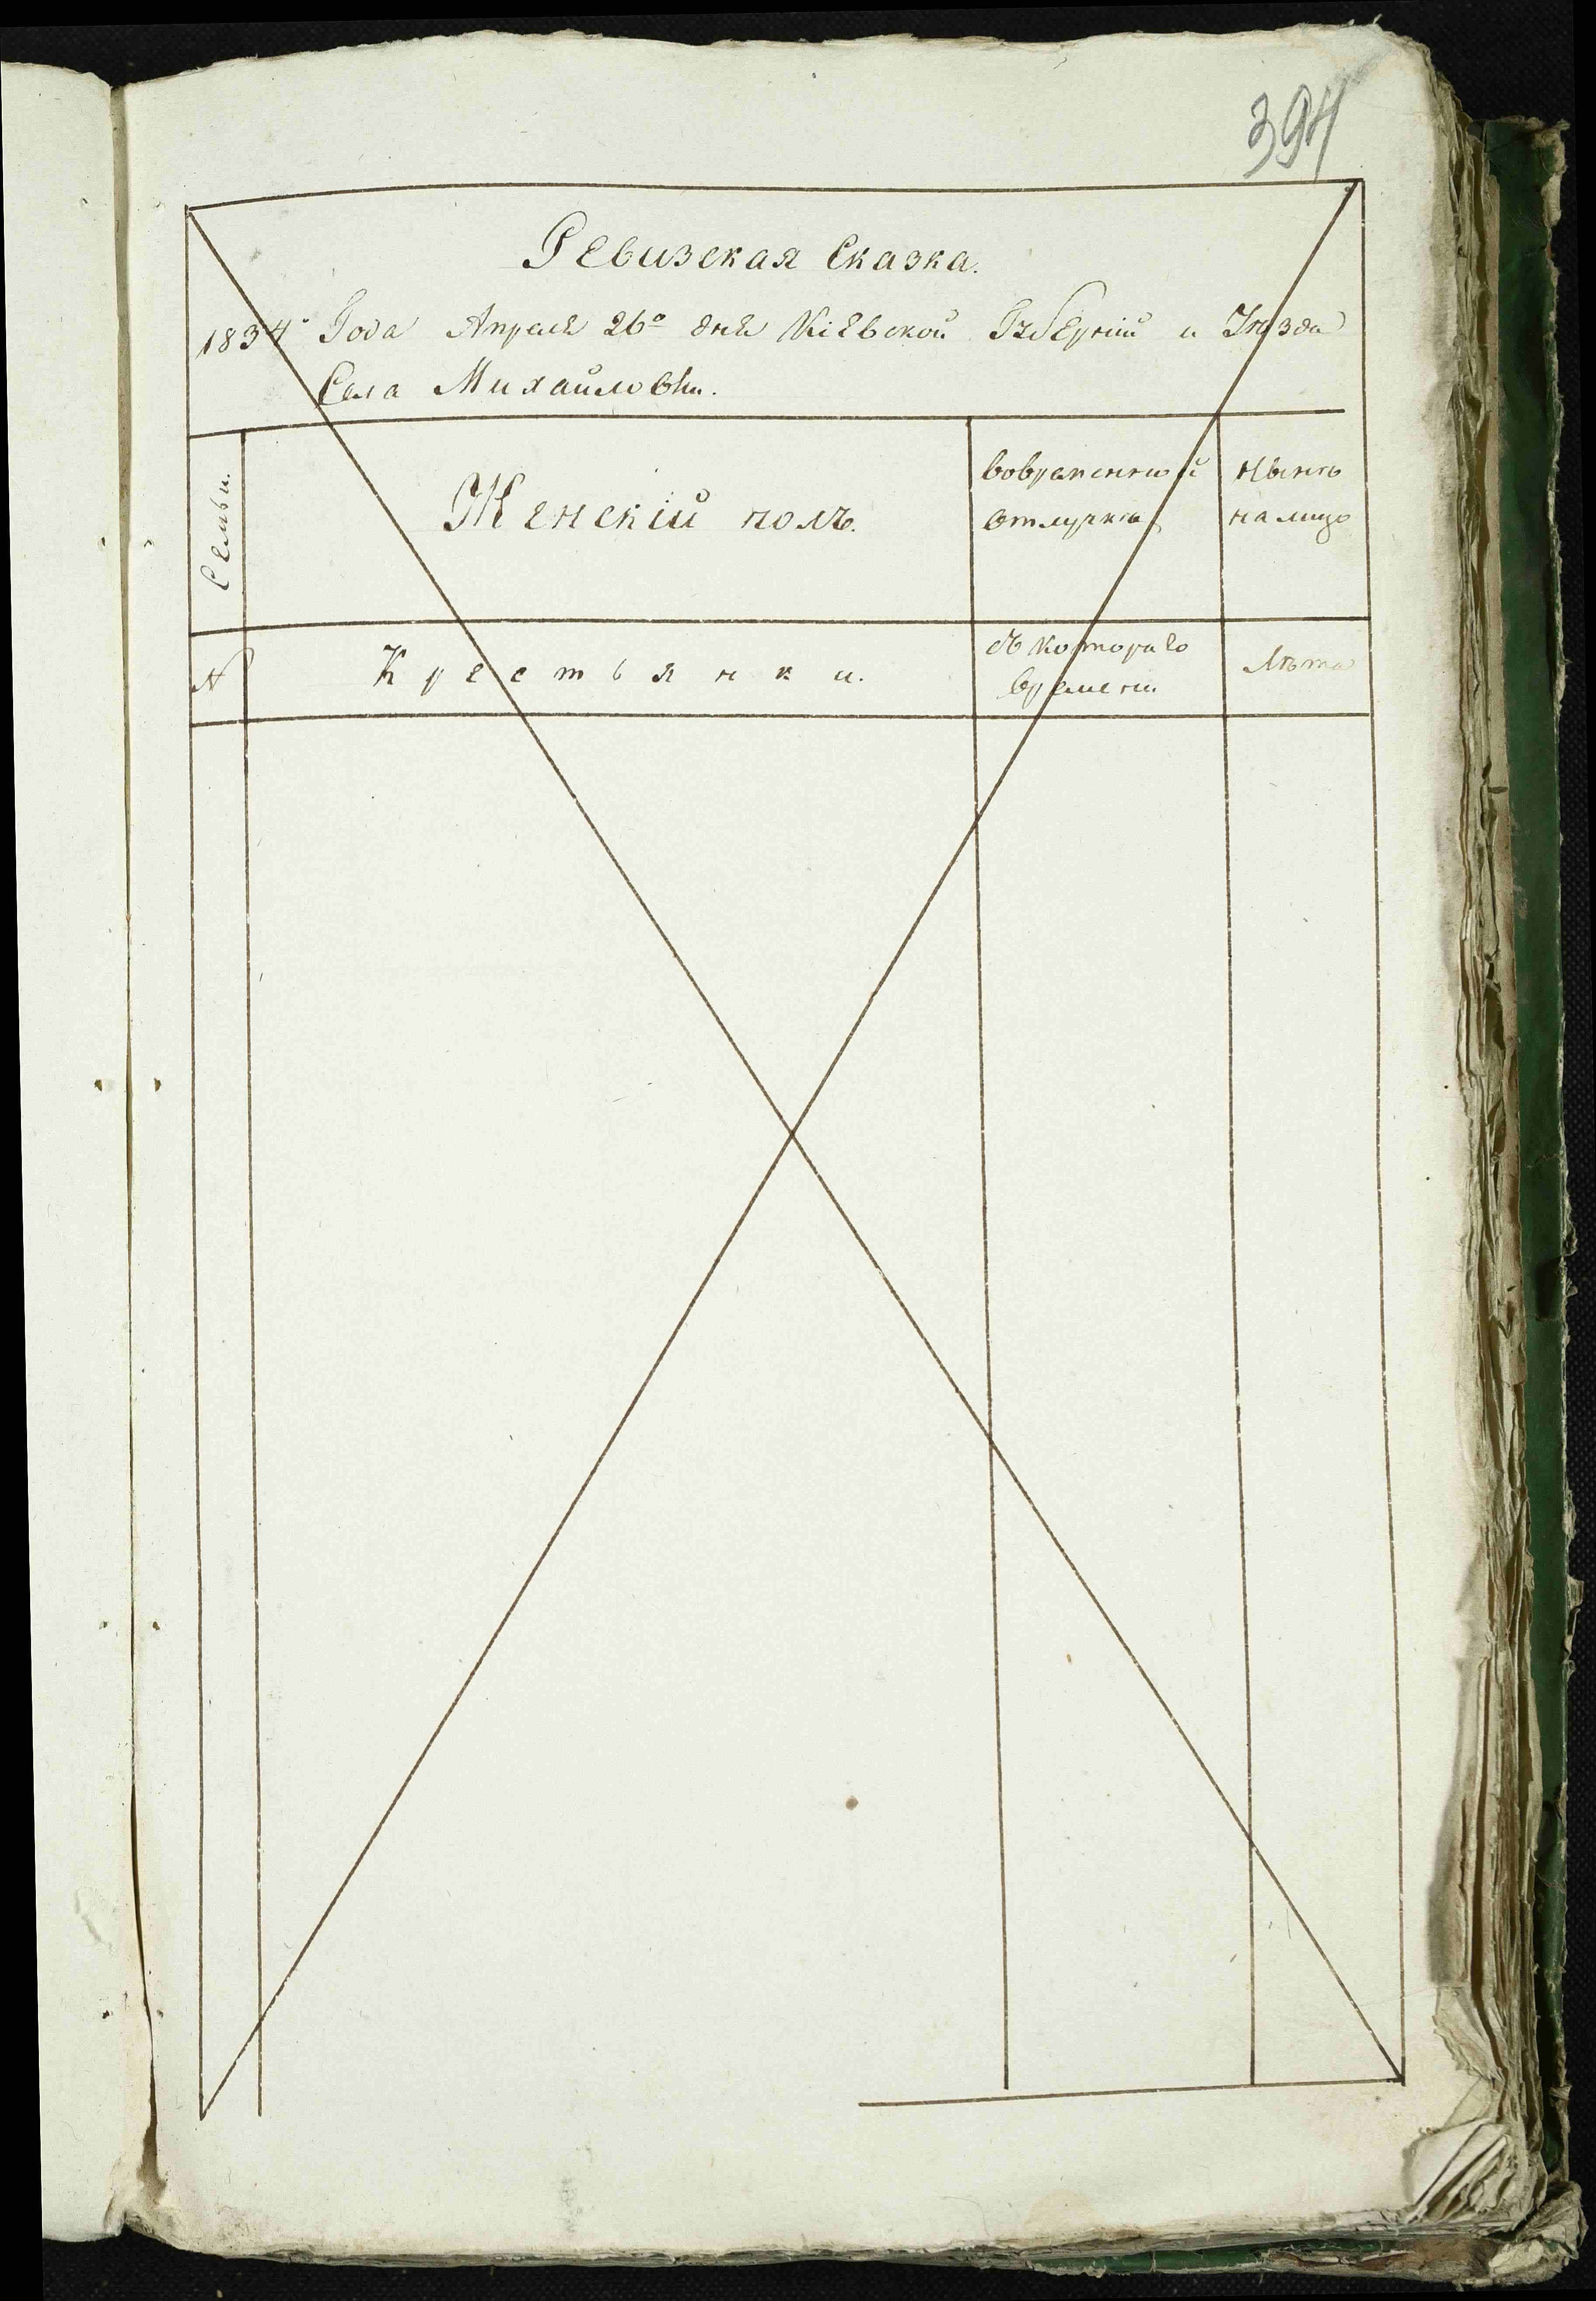 394
Ревизская Сказка.
1834º Года Апреля 26º дня Кіевской Губерніи и Уѣзда
Села Михайловки.
Семьи.
Женскій полъ.
вовременной
отлучкѣ
Нынѣ
налицо
№
Крестьянки.
съ котораго
времени
Лѣта